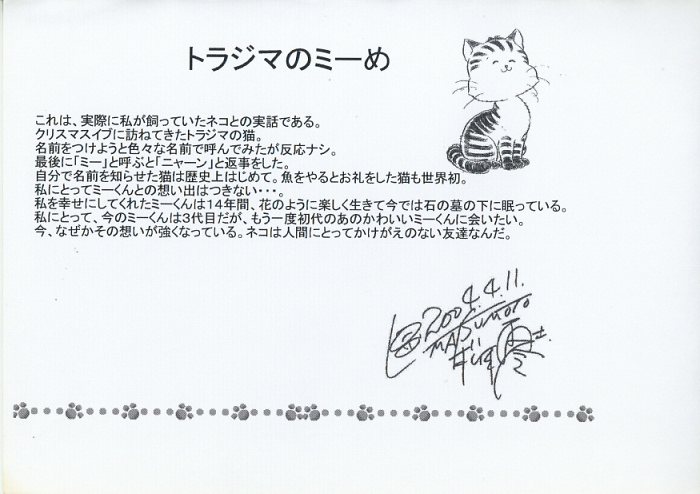 トラジマのミーめ
これは、実際に私が飼っていたネコとの実話である。
クリスマスイブに訪ねてきたトラジマの猫。
名前をつけようと色々な名前で呼んでみたが反応ナシ。
最後に「ミー」と呼ぶと「ニャーン」と返事をした。
自分で名前を知らせた猫は歴史上はじめて。魚をやるとお礼をした猫も世界初。
私にとってミーくんとの想い出はつきない・・・。
私を幸せにしてくれたミーくんは14年間、花のように楽しく生きて今では石の墓の下に眠っている。
私にとって、今のミーくんは3代目だが、もう一度初代のあのかわいいミーくんに会いたい。
今、なぜかその想いが強くなっている。ネコは人間にとってかけがえのない友達なんだ。
2004.4.11.
MATSUMOTO